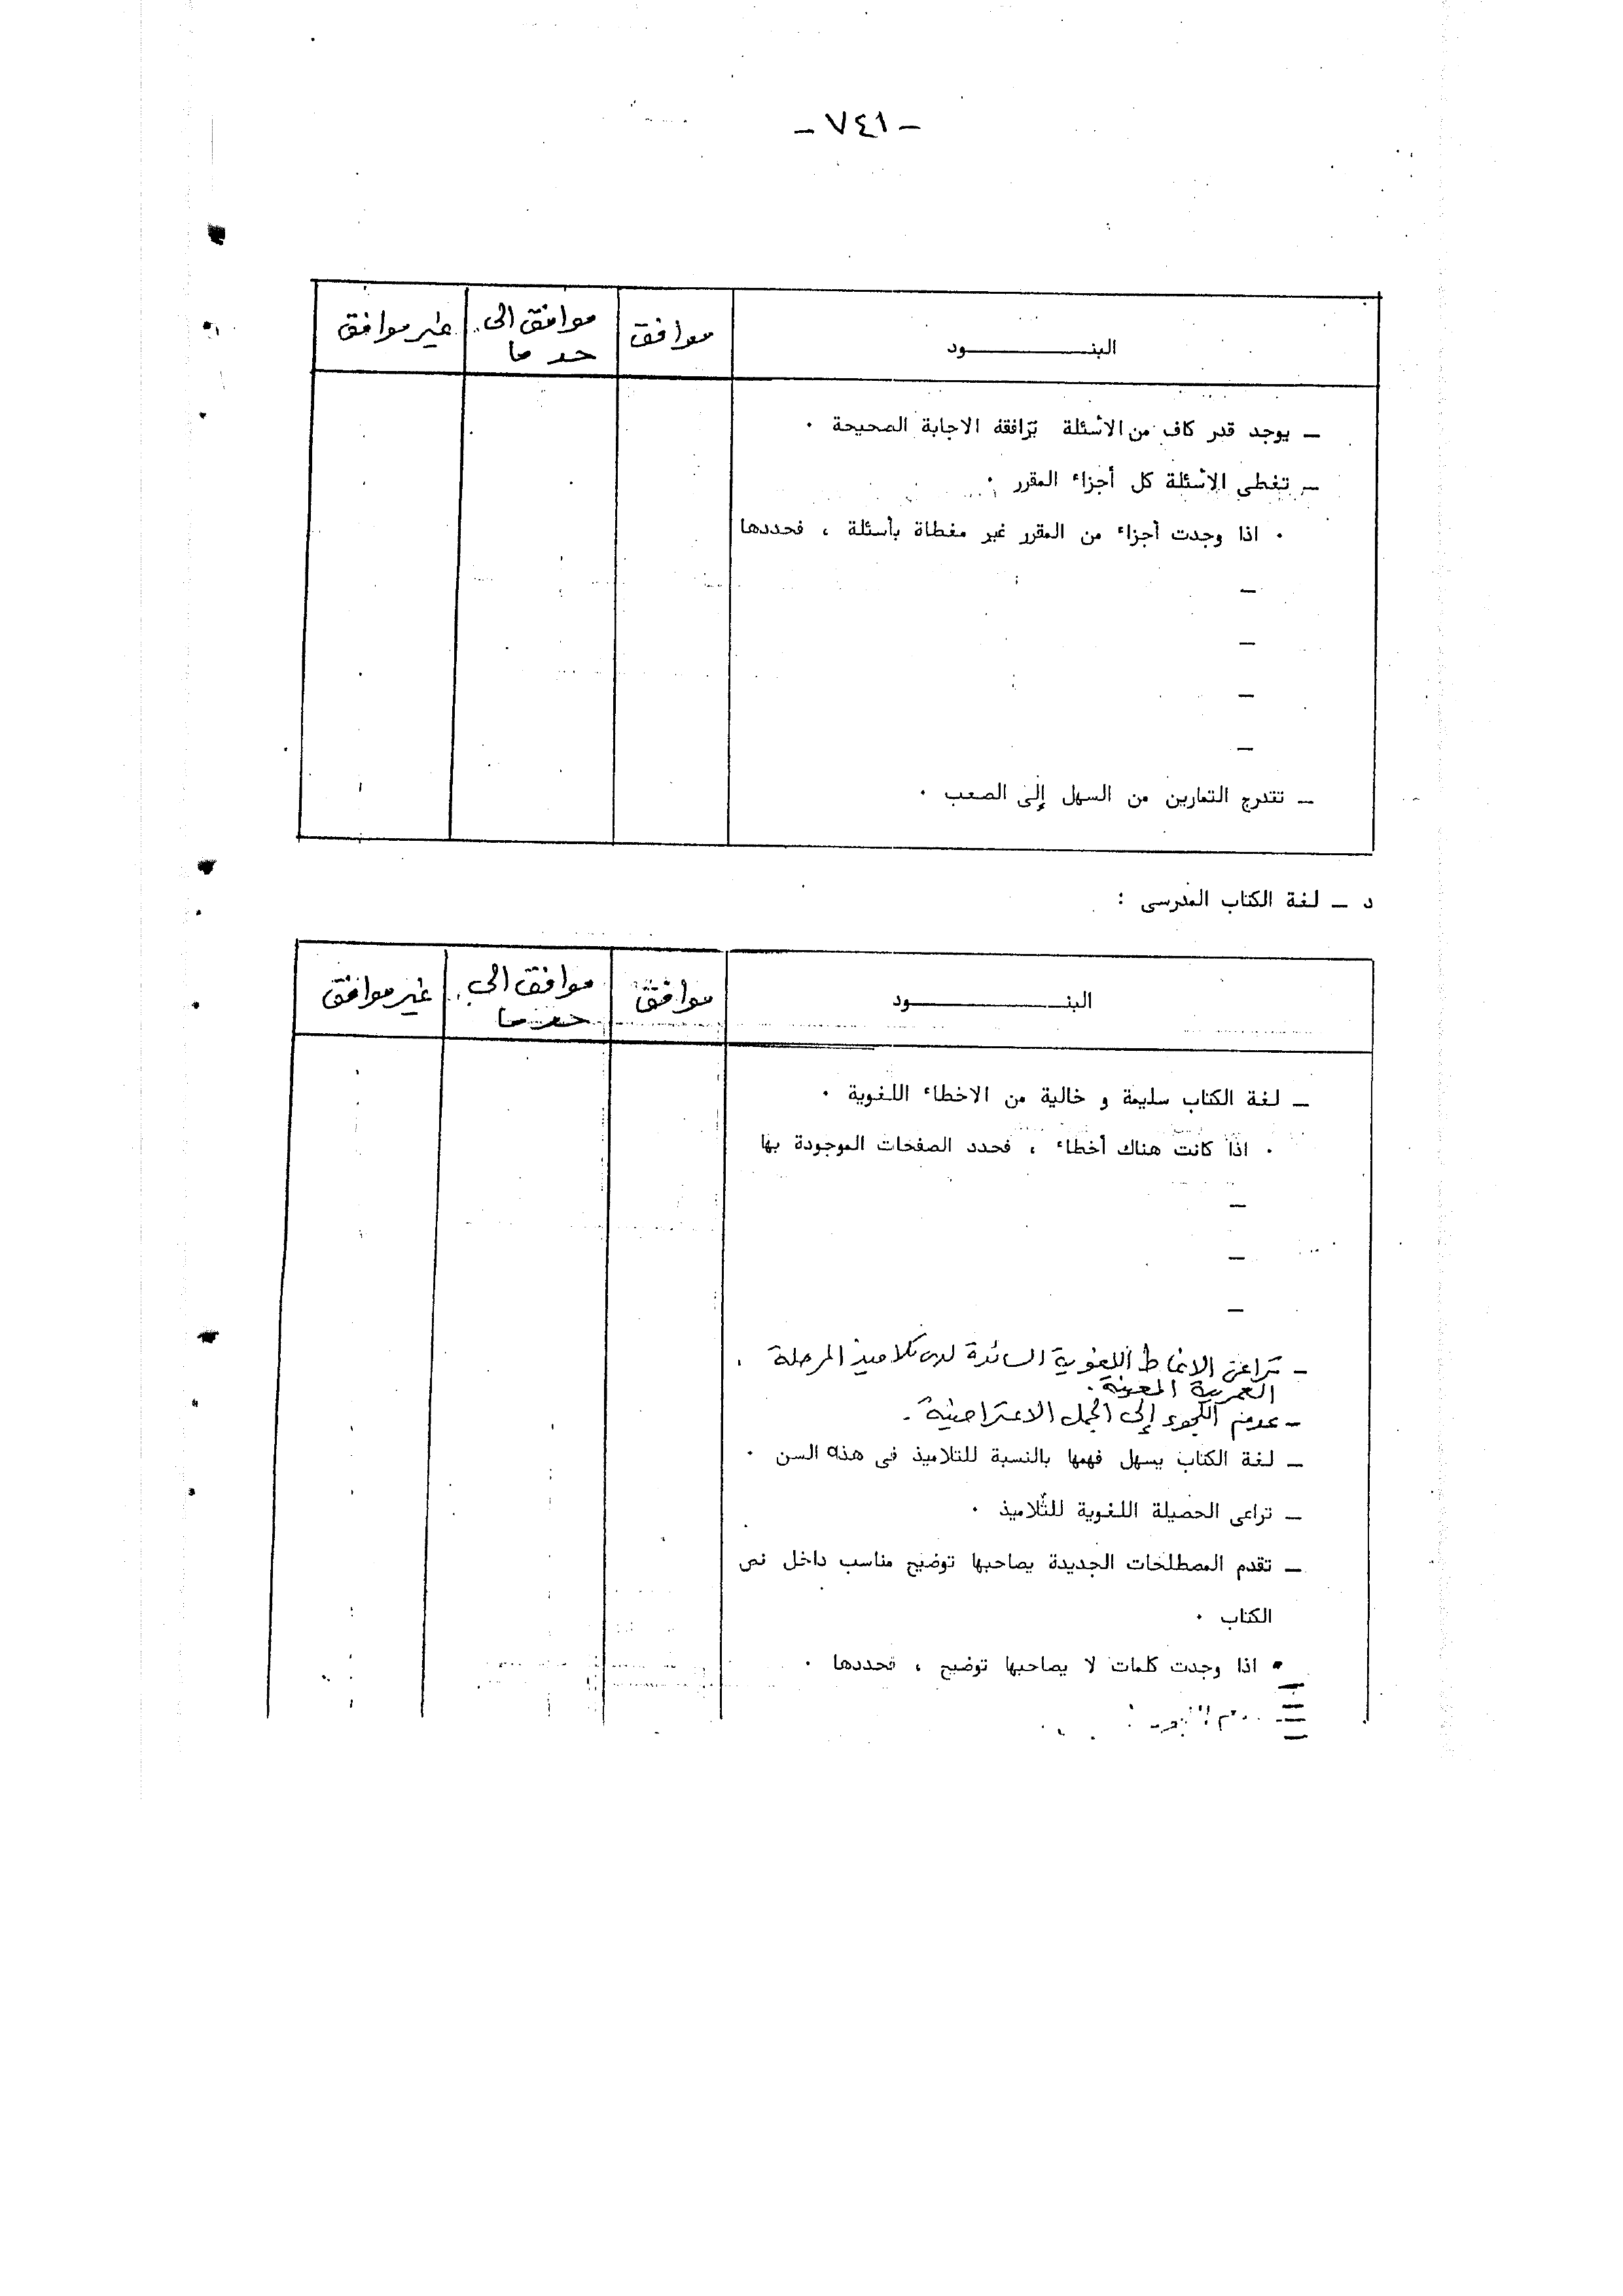 - ٧٤١ -
البنــــــــود موافق موافق الى غير موافق
حد ما
ـ يوجد قدر كاف من الأسئلة ترافقه الاجابة الصحيحة ٠
ـ تغطى الأسئلة كل أجزاء المقرر ٠
٠ اذا وجدت أجزاء من المقرر غير مغطاة بأسئلة ، فحددها
ـ
ـ
ـ
ـ
ـ تتدرج التمارين من السهل إلى الصعب ٠
د ـ لغة الكتاب المدرسى :
البنــــــــود موافق موافق الى غير موافق
حد ما
ـ لغة الكتاب سليمة و خالية من الاخطاء اللغوية ٠
٠ اذا كانت هناك أخطاء ، فحدد الصفحات الموجودة بها
ـ
ـ
ـ
- تراعى الانماط اللغوية السائدة لدى تلاميذ المرحلة
العمرية المعينة.
- عدم اللجوء إلى الجمل الاعتراضية.
ـ لغة الكتاب يسهل فهمها بالنسبة للتلاميذ فى هذه السن ٠
ـ تراعى الحصيلة اللغوية للتلاميذ ٠
ـ تقدم المصطلحات الجديدة يصاحبها توضيح مناسب داخل نص
الكتاب ٠
• اذا وجدت كلمات لا يصاحبها توضيح ، فحددها ٠